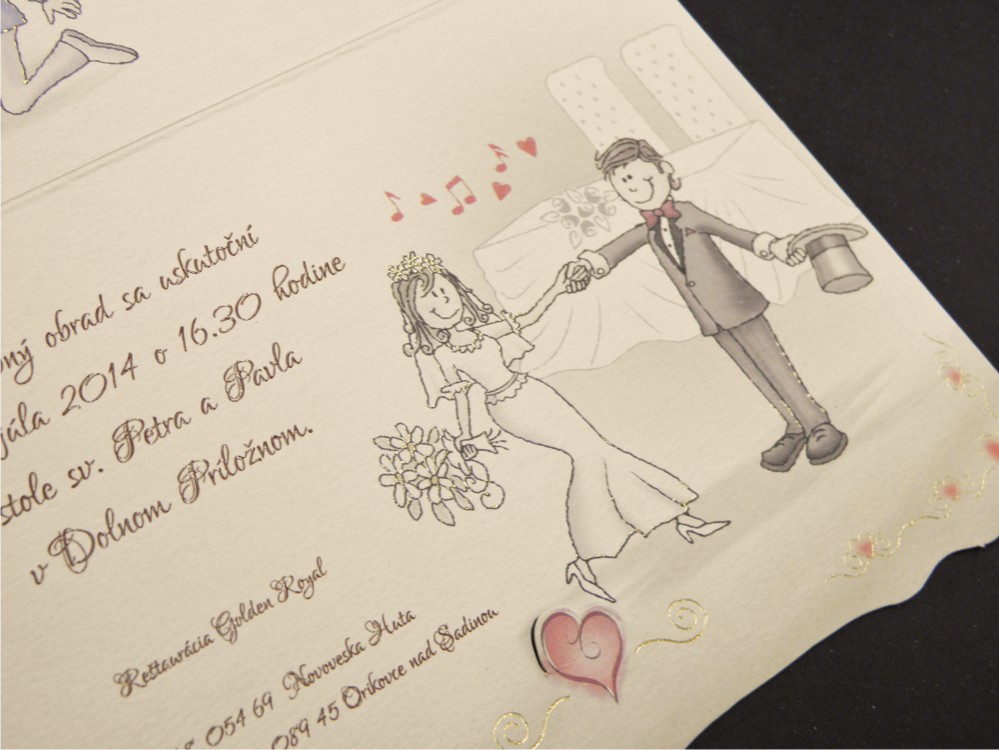 obrad sa uskutoční
júla 2014 o 16.30 hodine
stole sv. Petra a Pavla
v Dolnom Príložnom.
Reštaurácia Golden Royal
054 69 Novoveska Huta
089 45 Orikovce nad Sadinou